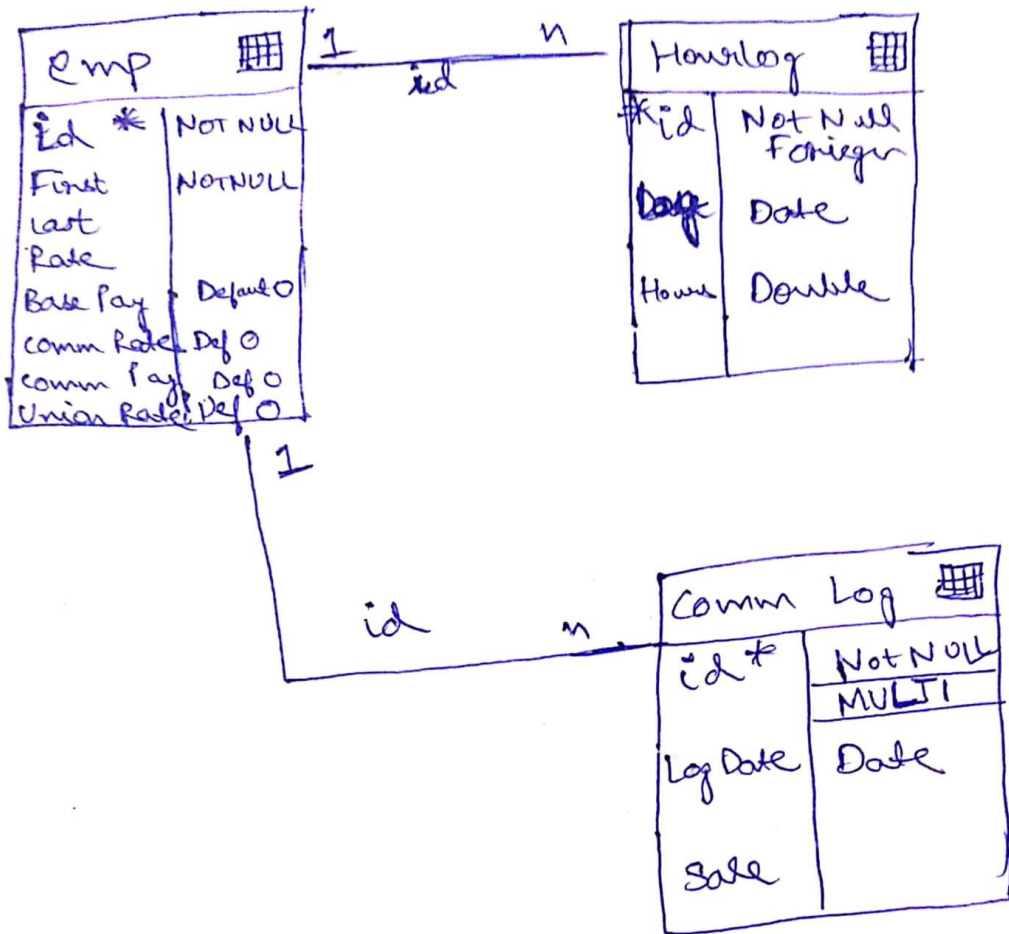 emp
id * NOT NULL
First NOTNULL
Last
Rate
Base Pay Default 0
comm Rate Def 0
comm Pay Def 0
Union Rate Def 0
1 n
id
Hourlog
*id Not Null
Foriegn
Date
Hours Double
1
id n
Comm Log
id * Not NULL
MULTI
Log Date Date
Sale